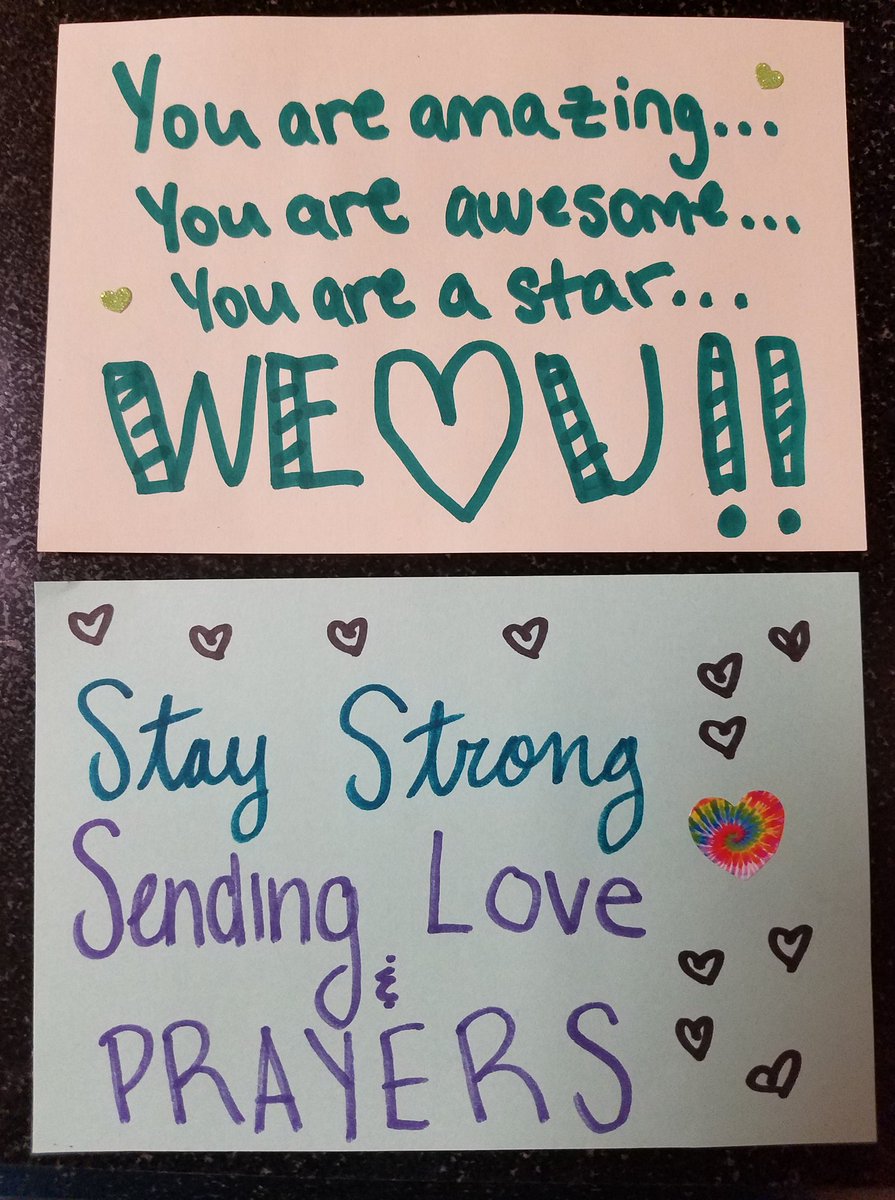 You are amazing...
You are awesome...
You are a star...
WE ♡ U!!
Stay Strong
Sending Love
&
PRAYERS